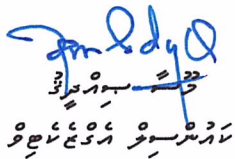 މޫސާ ޞިއްދީޤު
ކައުންސިލް އެގްޒެކެޓިވް